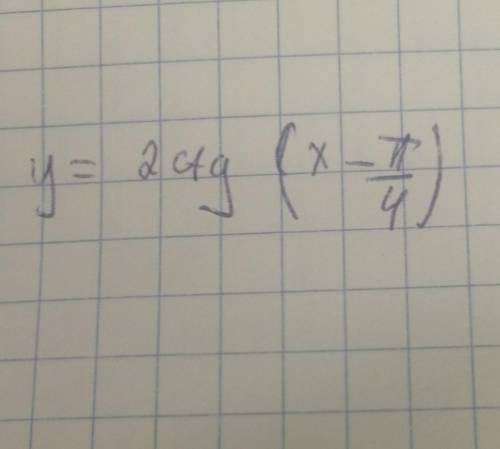 y = 2 ctg (x - π/4)